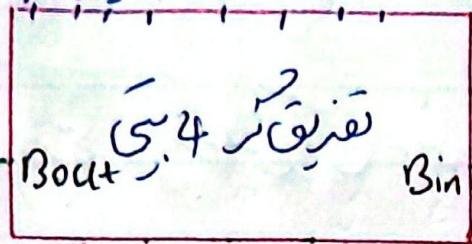 تفریق گر 4 بیتی
Bout
Bin